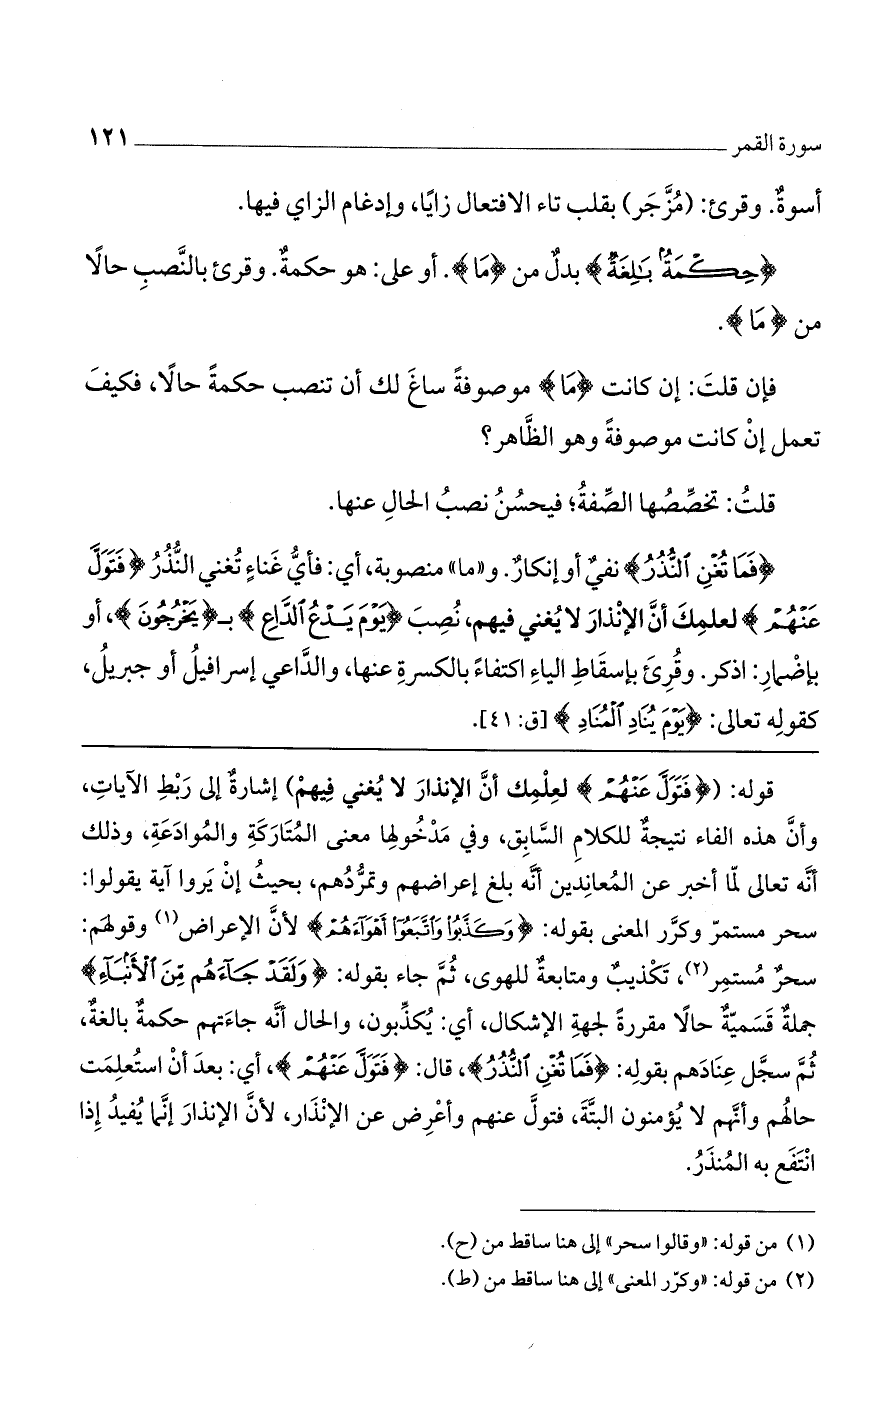 سورة القمر ١٢١
أسوةٌ. وقرئ: (مُزَّجَر) بقلب تاء الافتعال زايًا، وإدغام الزاي فيها.
﴿حِكْمَةٌۢ بَٰلِغَةٌ﴾ بدلٌ من ﴿مَا﴾. أو على: هو حكمةٌ. وقرئ بالنَّصبِ حالًا
من ﴿مَا﴾.
فإن قلتَ: إن كانت ﴿مَا﴾ موصوفةً ساغَ لك أن تنصب حكمةً حالًا، فكيفَ
تعمل إنْ كانت موصوفةً وهو الظَّاهر؟
قلتُ: تخصِّصُها الصِّفةُ؛ فيحسُنُ نصبُ الحالِ عنها.
﴿فَمَا تُغْنِ ٱلنُّذُرُ﴾ نفيٌ أو إنكارٌ. و«ما» منصوبة، أي: فأيُّ غَناءٍ تُغني النُّذُرُ ﴿فَتَوَلَّ
عَنْهُمْ﴾ لعلمِكَ أنَّ الإنْذارَ لا يُغني فيهم، نُصِبَ ﴿يَوْمَ يَدْعُ ٱلدَّاعِ﴾ بـ﴿يَخْرُجُونَ﴾، أو
بإضْمارِ: اذكر. وقُرِئَ بإسقَاطِ الياءِ اكتفاءً بالكسرةِ عنها، والدَّاعي إسرافيلُ أو جبريلُ،
كقولِه تعالى: ﴿يَوْمَ يُنَادِ ٱلْمُنَادِ﴾ [ق: ٤١].
قوله: (﴿فَتَوَلَّ عَنْهُمْ﴾ لعِلْمِك أنَّ الإنذارَ لا يُغني فِيهمْ) إشارةٌ إلى رَبْطِ الآياتِ،
وأنَّ هذه الفاء نتيجةٌ للكلامِ السَّابِق، وفي مَدْخُولِها معنى المُتَارَكَةِ والمُوادَعَةِ، وذلك
أنَّه تعالى لمّا أخبر عن المُعانِدين أنَّه بلغ إعراضهم وتمرُّدهم، بحيثُ إنْ يَروا آية يقولوا:
سحر مستمرّ وكرَّر المعنى بقوله: ﴿وَكَذَّبُوا۟ وَٱتَّبَعُوٓا۟ أَهْوَآءَهُمْ﴾ لأنَّ الإعراض(١) وقولهَم:
سحرٌ مُستمِر(٢)، تَكْذيبٌ ومتابعةٌ للهوى، ثُمَّ جاء بقوله: ﴿وَلَقَدْ جَآءَهُم مِّنَ ٱلْأَنۢبَآءِ﴾
جملةٌ قَسَميّةٌ حالًا مقررةً لجهةِ الإشكال، أي: يُكذِّبون، والحال أنَّه جاءَتهم حكمةٌ بالغةٌ،
ثُمَّ سجَّل عِنَادَهم بقولِه: ﴿فَمَا تُغْنِ ٱلنُّذُرُ﴾، قال: ﴿فَتَوَلَّ عَنْهُمْ﴾، أي: بعدَ أنْ استُعلِمَت
حالُهم وأنَّهم لا يُؤمنون البتَّةَ، فتولَّ عنهم وأعْرِض عن الإنْذَار، لأنَّ الإنذارَ إنَّما يُفيدُ إِذا
انْتَفَع به المُنذَرُ.
(١) من قوله: «وقالوا سحر» إلى هنا ساقط من (ح).
(٢) من قوله: «وكرّر المعنى» إلى هنا ساقط من (ط).